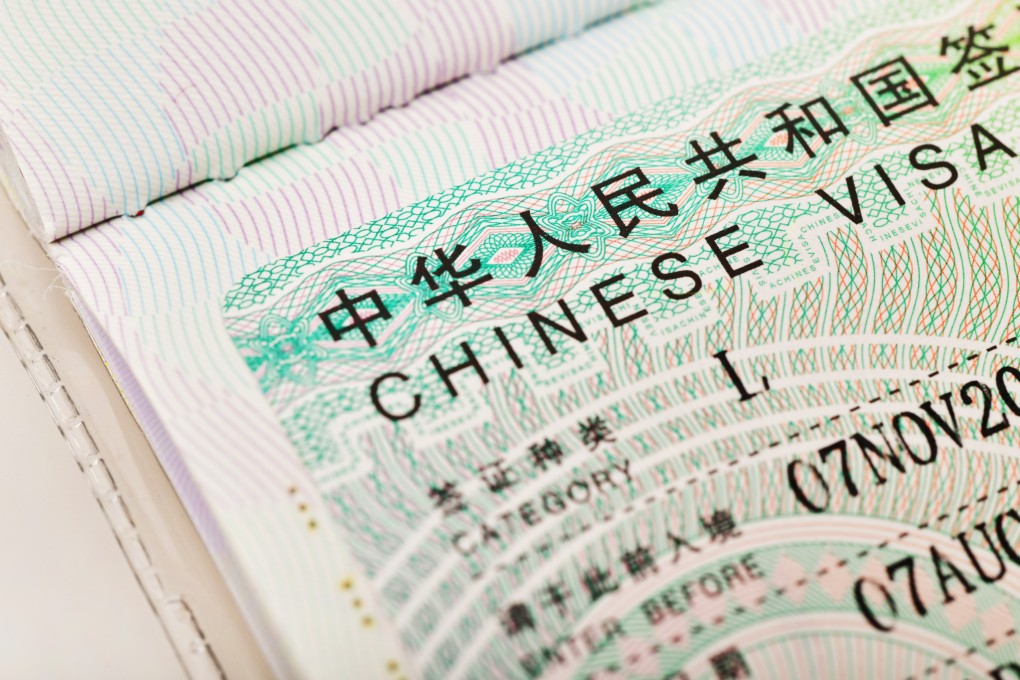 中华人民共和国签
CHINESE VISA
签证种类 L
CATEGORY
请于此前入境 07NOV20
ENTER BEFORE
07AUG
期